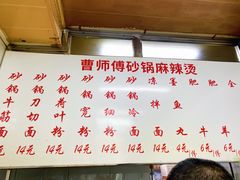 曹师傅砂锅麻辣烫
砂锅牛筋面 14元
砂锅刀切面 14元
砂锅荷叶粉 14元
砂锅宽粉 14元
砂锅细粉 14元
拌冷面 14元
墨鱼丸 4元
肥牛 6元
肥羊 6元
全